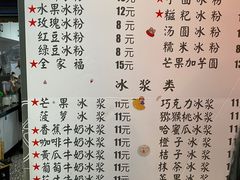 ★水果冰粉 12元
★玫瑰冰粉 8元
红豆冰粉 8元
绿豆冰粉 8元
★全家福 15元
★糍粑冰粉
汤圆冰粉
糯米冰粉
芒果加芋圆
冰浆类
★芒果冰浆 11元
菠萝冰浆 11元
★香蕉牛奶冰浆 11元
★咖啡牛奶冰浆 11元
★黄瓜牛奶冰浆 11元
★葡萄牛奶冰浆 11元
巧克力冰浆
猕猴桃冰浆
哈蜜瓜冰浆
橙子冰浆
桔子冰浆
抹茶冰浆